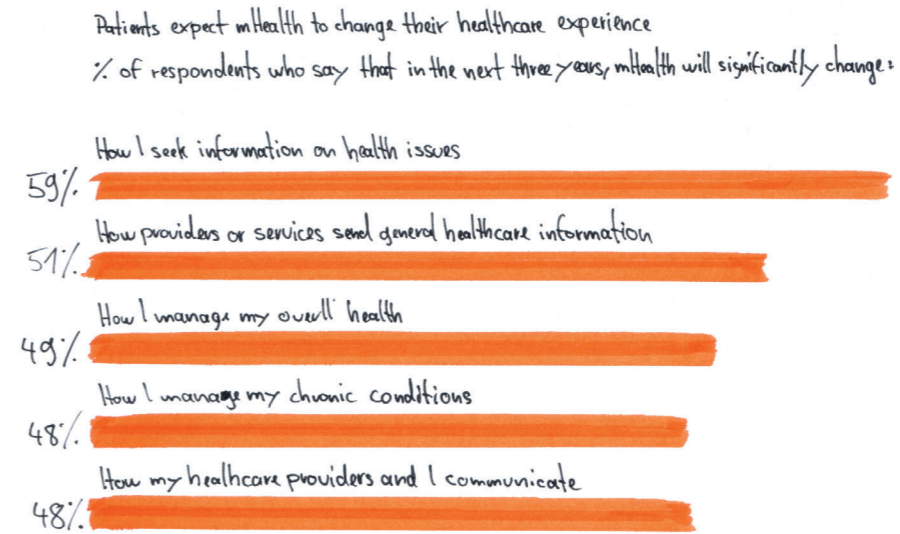 Patients expect mHealth to change their healthcare experience
% of respondents who say that in the next three years, mHealth will significantly change:
How I seek information on health issues
59%
How providers or services send general healthcare information
51%
How I manage my overll health
49%
How I manage my chronic conditions
48%
How my healhcare providers and I communicate
48%